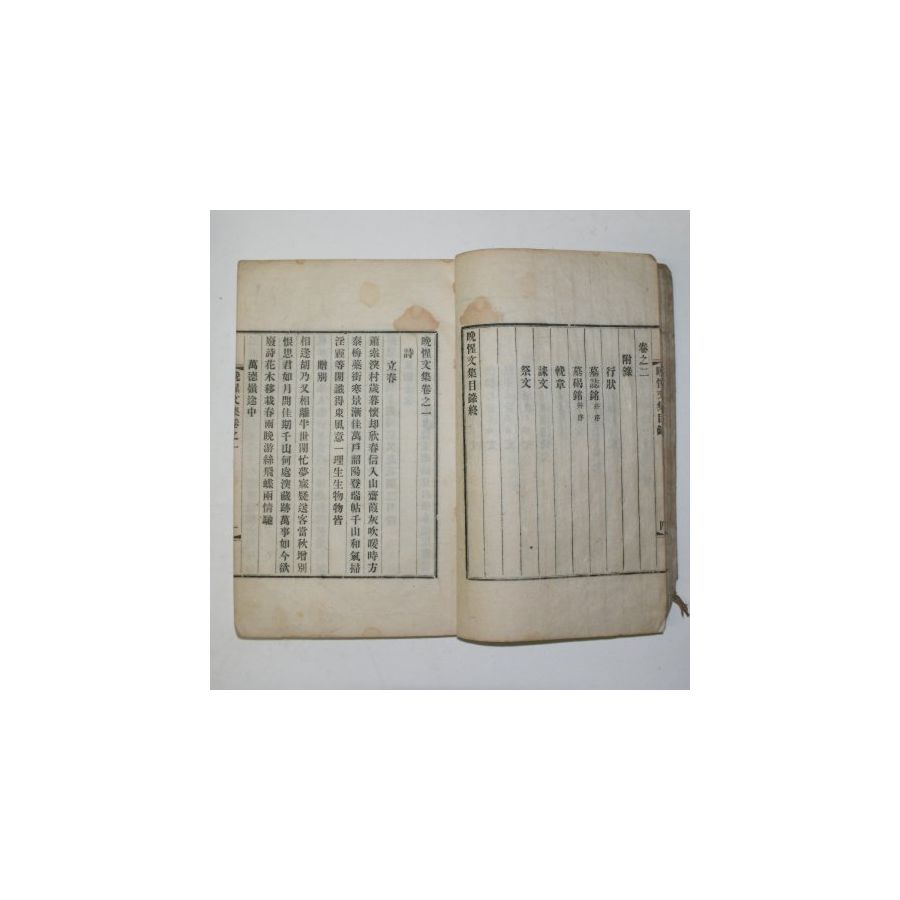 卷之二
附錄
行狀
墓誌銘 并序
墓碣銘 并序
輓章
誄文
祭文
晩惺文集目錄終
晩惺文集目錄
四
晩惺文集卷之一
詩
立春
蕭索溪村歲暮懷却欣春信入山齋葭灰吹暖時方
泰梅藥衝寒景漸佳萬戶韶陽登瑞帖千山和氣掃
淫霾等閒識得東風意一理生生物物皆
贈別
相逢胡乃又相離半世閒忙夢寐疑送客當秋增別
恨思君如月問佳期千山何處深藏跡萬事如今欲
廢詩花木移栽春雨晩游絲飛蝶兩情馳
萬德嶺途中
晩惺文集卷之一
一